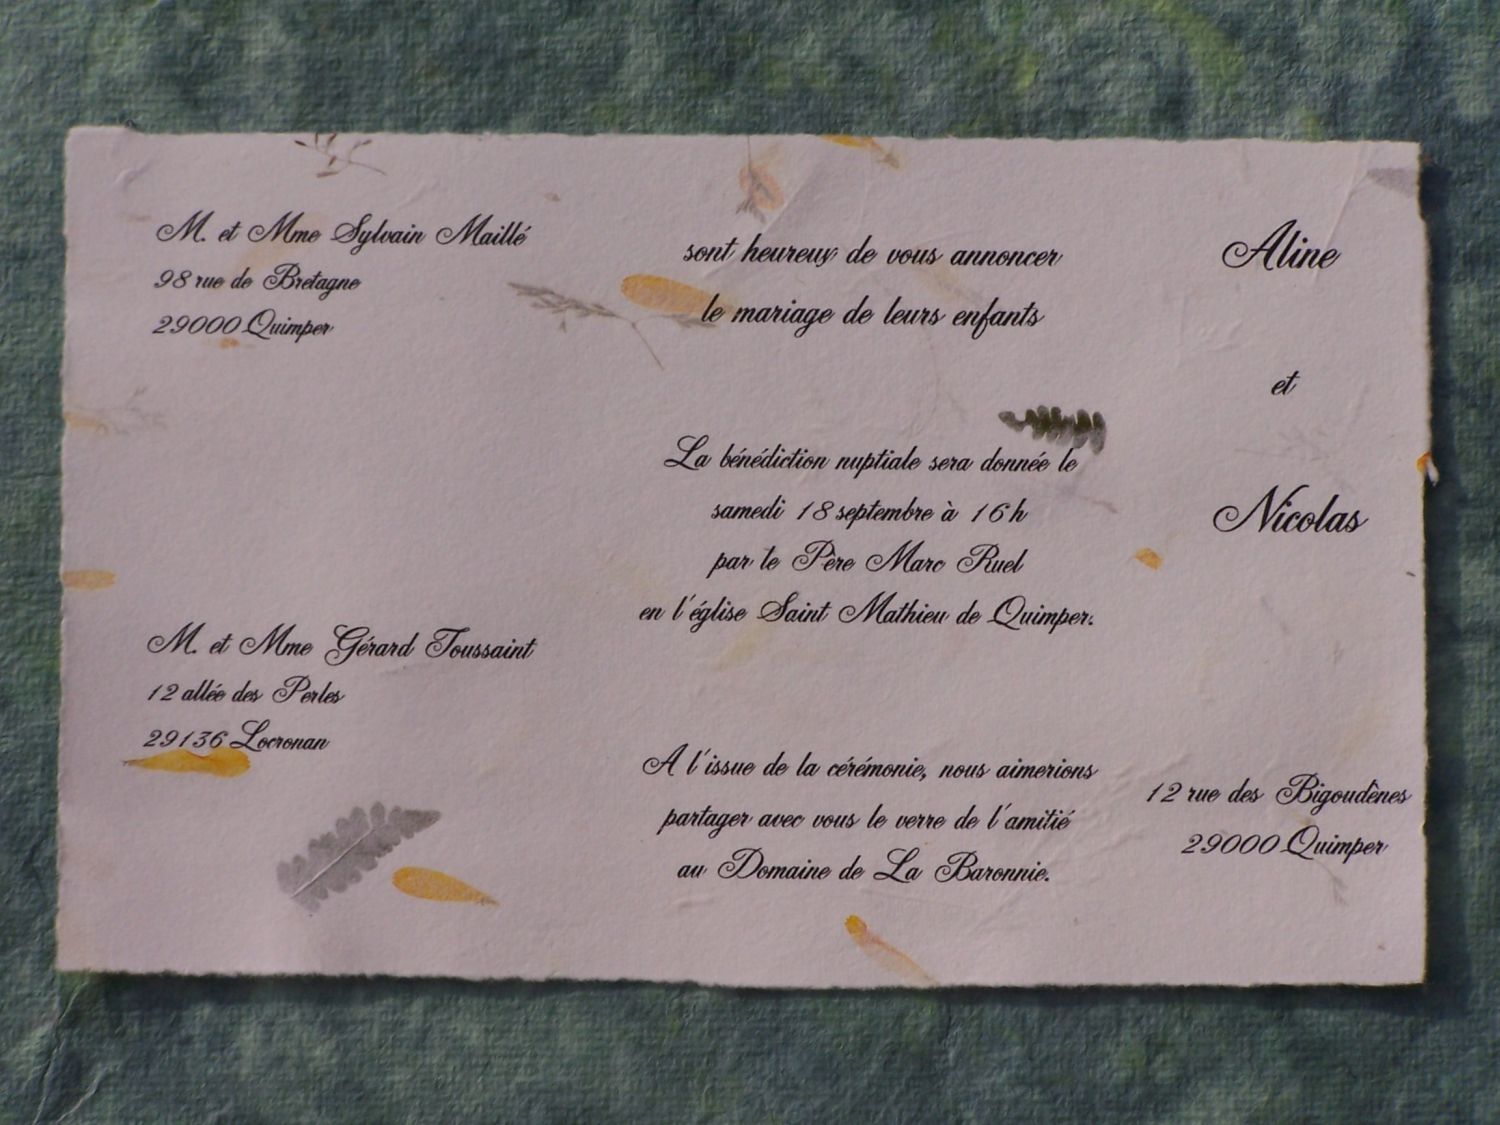 M. et Mme Sylvain Maillé
98 rue de Bretagne
29000 Quimper
M. et Mme Gérard Toussaint
12 allée des Perles
29136 Locronan
sont heureux de vous annoncer
le mariage de leurs enfants
La bénédiction nuptiale sera donnée le
samedi 18 septembre à 16 h
par le Père Marc Ruel
en l'église Saint Mathieu de Quimper.
A l'issue de la cérémonie, nous aimerions
partager avec vous le verre de l'amitié
au Domaine de La Baronnie.
Aline
et
Nicolas
12 rue des Bigoudènes
29000 Quimper